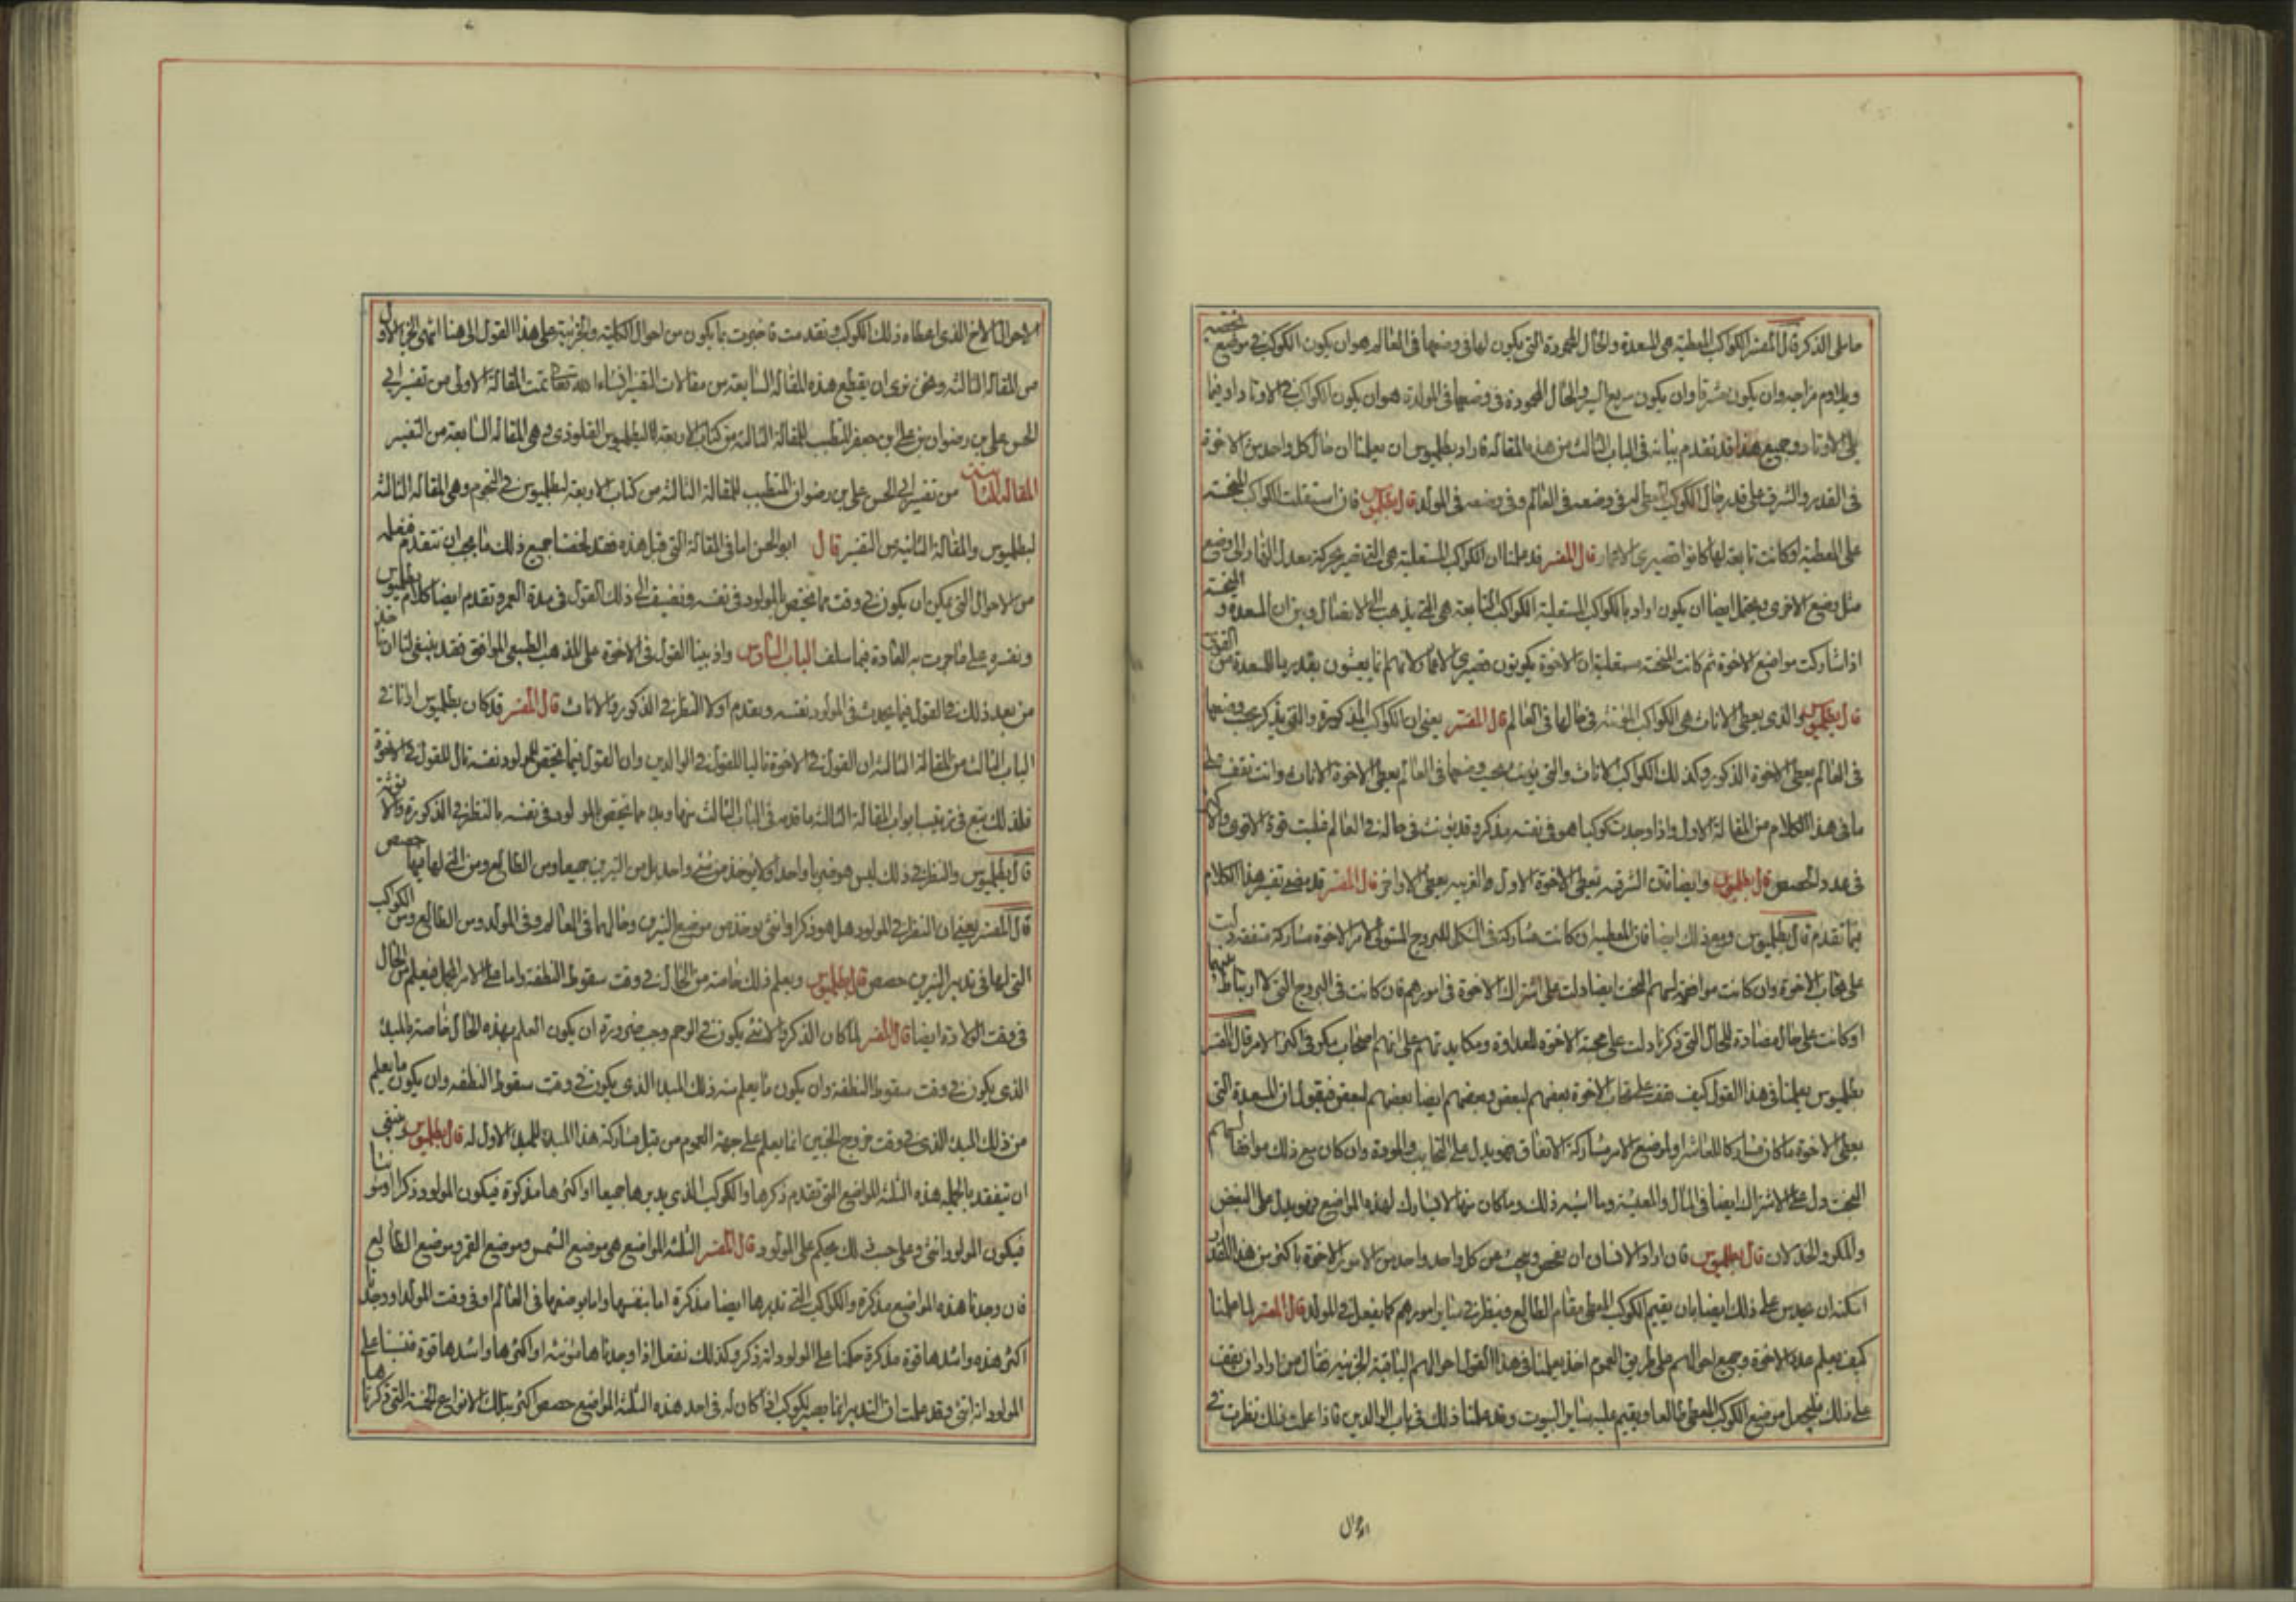 ما يلى الذكر قال المفسر الكواكب المعطية هى المسعدة والحال المحمودة التى يكون لها فى وضعها فى العالم هو ان يكون الكوكب فى موضع يختصه
ويلاوم مزاجه وان يكون مشرقا وان يكون سريع السير والحال المحمودة فى وضعها فى المولد هو ان يكون الكواكب فى الاوتاد او فيما
يلى الاوتاد وجميع هذا قد تقدم بيانه فى الباب الثالث من هذه المقالة فاراد بطلميوس ان يعلمنا ان حال كل واحد من الاخوة
فى القدر والشرف على قدر حال الكوكب المعطى له فى وضعه فى العالم وفى وضعه فى المولد قال بطلميوس فان استعلت الكواكب المنحسة
على المعطية او كانت تابعة لها كانوا قصيرى الاعمار قال المفسر قد علمنا ان الكواكب المستعلية هى التى تصير بحركة معدل النهار الى موضع
مثل وضع الاخرى ويحتمل ايضا ان يكون اراد بالكواكب المستعلية الكواكب التابعة هى التى يذهب الى الاتصال وبين ان المسعدة و المنحسة
اذا شاركت مواضع الاخوة ثم كانت المنحسة مستعلية ان الاخوة يكونون قصيرى الاعمار لانهم انما يعيشون بقدر ما للمسعدة من القوة
قال بطلميوس والذى يعطى الاناث هى الكواكب المؤنثة فى حالها فى العالم قال المفسر يعنى ان الكواكب المذكورة والتى يذكر بحسب وضعها
فى العالم يعطى الاخوة الذكور وكذلك الكواكب الاناث والتى يونث بحسب وضعها فى العالم يعطى الاخوة الاناث وانت تقف على
ما فى هذا الكلام من المقالة الاولى واذا وجدت كوكبا هو فى نفسه مذكر وقد يونث فى حاله فى العالم غلبت قوة الاقوى والاكثر
فى عدد الحصص قال بطلميوس وايضا فان الشرقية تعطى الاخوة الاول والغربية يعطى الاواخر قال المفسر قد مضى تفسير هذا الكلام
فيما تقدم قال بطلميوس ومع ذلك ايضا فان المعطية ان كانت مشاركة فى الشكل للبروج المستولى لامر الاخوة مشاركة متفقة دلت
على تحاب الاخوة وان كانت مواضعة لسهم البخت ايضا دلت على اشتراك الاخوة فى امورهم فان كانت فى البروج التى لا ارتباط بينها
او كانت على حال مضادة للحال التى ذكرنا دلت على محبة الاخوة للعداوة ومكايدتهم على انهم اصحاب مكر فى اكثر الامر قال المفسر
بطلميوس يعلمنا فى هذا القول كيف نقف على تحاب الاخوة بعضهم لبعض وبغضهم ايضا بعضهم لبعض فيقول ان المسعدة التى
يعطى الاخوة ما كان مشاركا للعاشر او لموضع الامر مشاركة الاتفاق فهو يدل على التحابب والمودة وان كان مع ذلك مواضعا لسهم
البخت دل على الاشتراك ايضا فى المال والمعيشة وما اشبه ذلك وما كان منها لا يشارك لهذه المواضع فهو يدل على البغض
والمكر والخذلان قال بطلميوس فان اراد الانسان ان يفحص ويبحث عن كل واحد واحد من الامور الاخوة باكثر من هذا القدر
امكنه ان يحدس على ذلك ايضا بان يقيم الكوكب المعطى مقام الطالع وينظر فى سائر امورهم كما يفعل فى المولد قال المفسر لما علمنا
كيف يعلم عدد الاخوة وجميع احوالهم على طريق العموم اخذ يعلمنا فى هذا القول احوالهم الباقية الجزئية فقال من اراد ان يقف
على ذلك فليجعل موضع الكوكب المعطى طالعا ويقيم عليه سائر البيوت وقد علمنا ذلك فى باب الوالدين فاذا عملت ذلك نظرت فى
احوال
الاحوال الاخ الذى اعطاه ذلك الكوكب وتقدمت فاخبرت بما يكون من احوال الكلية والجزئية على هذا القول الى هنا انتهى الجزء الاول
من المقالة الثالثة ونحن نرى ان يقطع هذه المقالة السابعة من مقالات التفسير ان شاء الله تعالى تمت المقالة الاولى من تفسير ابى
الحسن على بن رضوان بن على بن جعفر المتطبب للمقالة الثالثة من كتاب الاربعة لبطلميوس القلوذى وهى المقالة السابعة من التفسير
المقالة الثامنة من تفسير ابى الحسن على بن رضوان المتطبب للمقالة الثالثة من كتاب الاربعة لبطلميوس فى النجوم وهى المقالة الثالثة
لبطلميوس والمقالة الثانية من التفسير قال ابو الحسن اما فى المقالة التى قبل هذه فقد لخصنا جميع ذلك ما يجب ان نتقدم فنعلمه
من الاحوال التى يمكن ان يكون فى وقت ما يختص بالمولود فى نفسه ونضيف الى ذلك القول فى مدة العمر ونقدم ايضا كلام بطلميوس
ونفسره على ما جرت به العادة فيما سلف الباب السادس واذ بينا القول فى الاخوة على المذهب الطبيعى الموافق فقد ينبغى لنا ان ناخذ
من بعد ذلك فى القول فيما يحدث فى المولود نفسه ونقدم اولا النظر فى الذكور والاناث قال المفسر قد كان بطلميوس ارانا فى
الباب الثالث من المقالة الثالثة ان القول فى الاخوة تاليا للقول فى الوالدين وان القول فيما يختص المولود نفسه تال للقول فى الاخوة
فلذلك يتبع فى ترتيب ابواب المقالة الثالثة ما قدمه فى الباب الثالث منها وبدا ما يختص المولود فى نفسه بالنظر فى الذكورة والانوثة
قال بطلميوس والنظر فى ذلك ليس هو ضربا واحدا ولا يوخذ من شئ واحد بل من النيرين جميعا ومن الطالع ومن التى لها فيها حصص
قال المفسر يعنى ان النظر فى المولود هل هو ذكر او انثى يوخذ من موضع النيرين وحالهما فى العالم وفى المولد ومن الطالع ومن الكواكب
التى لها فى تدبير النيرين حصص قال بطلميوس ويعلم ذلك خاصة من الحال فى وقت سقوط النطفة واما على الامر المجمل فيعلم من الحال
فى وقت الولادة ايضا قال المفسر لما كان الذكر والانثى يكون فى الرحم وجب ضرورة ان يكون العلم بهذه الحال خاصة بالمبدا
الذى يكون فى وقت سقوط النطفة وان يكون ما يعلم منه ذلك المبدا الذى يكون فى وقت سقوط النطفة وان يكون ما يعلم
من ذلك المبدا الذى فى وقت خروج الجنين انما يعلم على جهة العموم من قبل مشاركة هذا المبدا للمبدا الاول له قال بطلميوس وينبغى
ان تتفقد بالجملة هذه الثلثة المواضع التى تقدم ذكرها والكوكب الذى يدبرها جميعا او اكثرها مذكرة فيكون المولود ذكرا او مونثا
فيكون المولود انثى وعلى حسب ذلك يحكم على المولود قال المفسر الثلثة المواضع هى موضع الشمس وموضع القمر وموضع الطالع
فان وجدنا هذه المواضع مذكرة والكواكب التى تدبرها ايضا مذكرة اما بنفسها واما بوضعها فى العالم او فى وقت المولد او وجدنا
اكثر هذه واشدها قوة مذكرة حكمنا على المولود انه ذكر وكذلك نفعل اذا وجدناها مونثة او اكثرها واشدها قوة قضينا على
المولود انه انثى وقد علمت ان التدبير انما يصير لكوكب اذا كان له فى احد هذه الثلثة المواضع حصص اكثر بتلك الانواع الخمسة التى ذكرناها